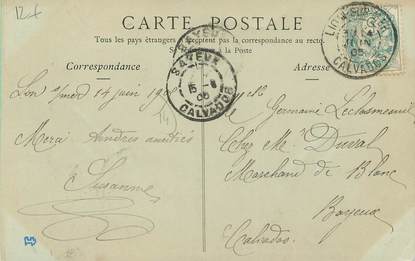 12f
CARTE POSTALE
Tous les pays étrangers acceptent pas la correspondance au recto
à la Poste
Correspondance
Adresse
LION-SUR-MER
14
JUIN
05
CALVADOS
BAYEUX
15 -6
05
CALVADOS
14 juin 190
Merci
Suzanne
Melle
Germaine
Chez Mr Duval
Marchand de Blanc
Bayeux
Calvados